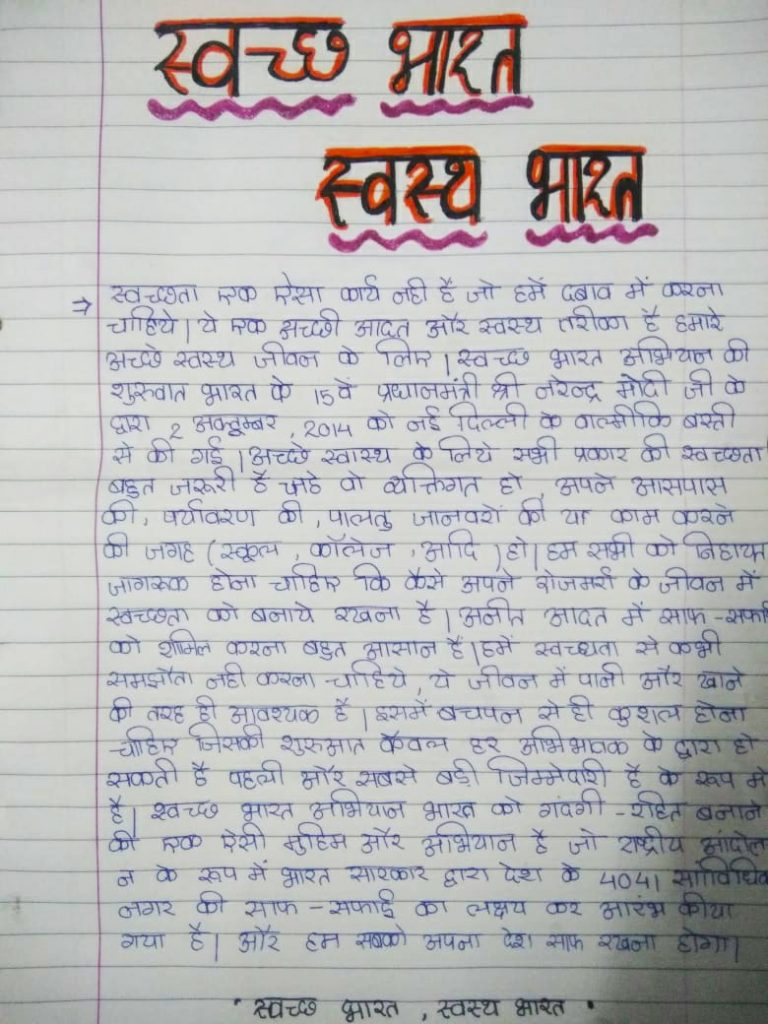 स्वच्छ भारत
स्वस्थ भारत
⇒ स्वच्छता एक ऐसा कार्य नही है जो हमें दबाव में करना
चाहिये। ये एक अच्छी आदत और स्वस्थ तरीका है हमारे
अच्छे स्वस्थ जीवन के लिए। स्वच्छ भारत अभियान की
शुरुवात भारत के 15वे प्रधानमंत्री श्री नरेन्द्र मोदी जी के
द्वारा 2 अक्टूम्बर, 2014 को नई दिल्ली के वाल्मीकि बस्ती
से की गई। अच्छे स्वास्थ के लिये सभी प्रकार की स्वच्छता
बहुत जरूरी है चाहे वो व्यक्तिगत हो अपने आसपास
की, पर्यावरण की, पालतु जानवरों की या काम करने
की जगह (स्कूल, कॉलेज, आदि) हो। हम सभी को निहायत
जागरूक होना चाहिए कि कैसे अपने रोजमर्रा के जीवन में
स्वच्छता को बनाये रखना है। अनीत आदत में साफ-सफाई
को शामिल करना बहुत आसान है। हमें स्वच्छता से कभी
समझौता नही करना चाहिये, ये जीवन में पानी और खाने
की तरह ही आवश्यक है। इसमें बचपन से ही कुशल होना
चाहिए जिसकी शुरुआत केवल हर अभिभावक के द्वारा हो
सकती है पहली और सबसे बड़ी जिम्मेपारी है के रूप मे
है। स्वच्छ भारत अभियान भारत को गंदगी-रहित बनाने
की एक ऐसी मुहिम और अभियान है जो राष्ट्रीय आंदोल
न के रूप में भारत सारकार द्वारा देश के 4041 सांविधिक
नगर की साफ-सफाई का लक्षय कर आरंभ कीया
गया है। और हम सबको अपना देश साफ रखना होगा।
" स्वच्छ भारत, स्वस्थ भारत "